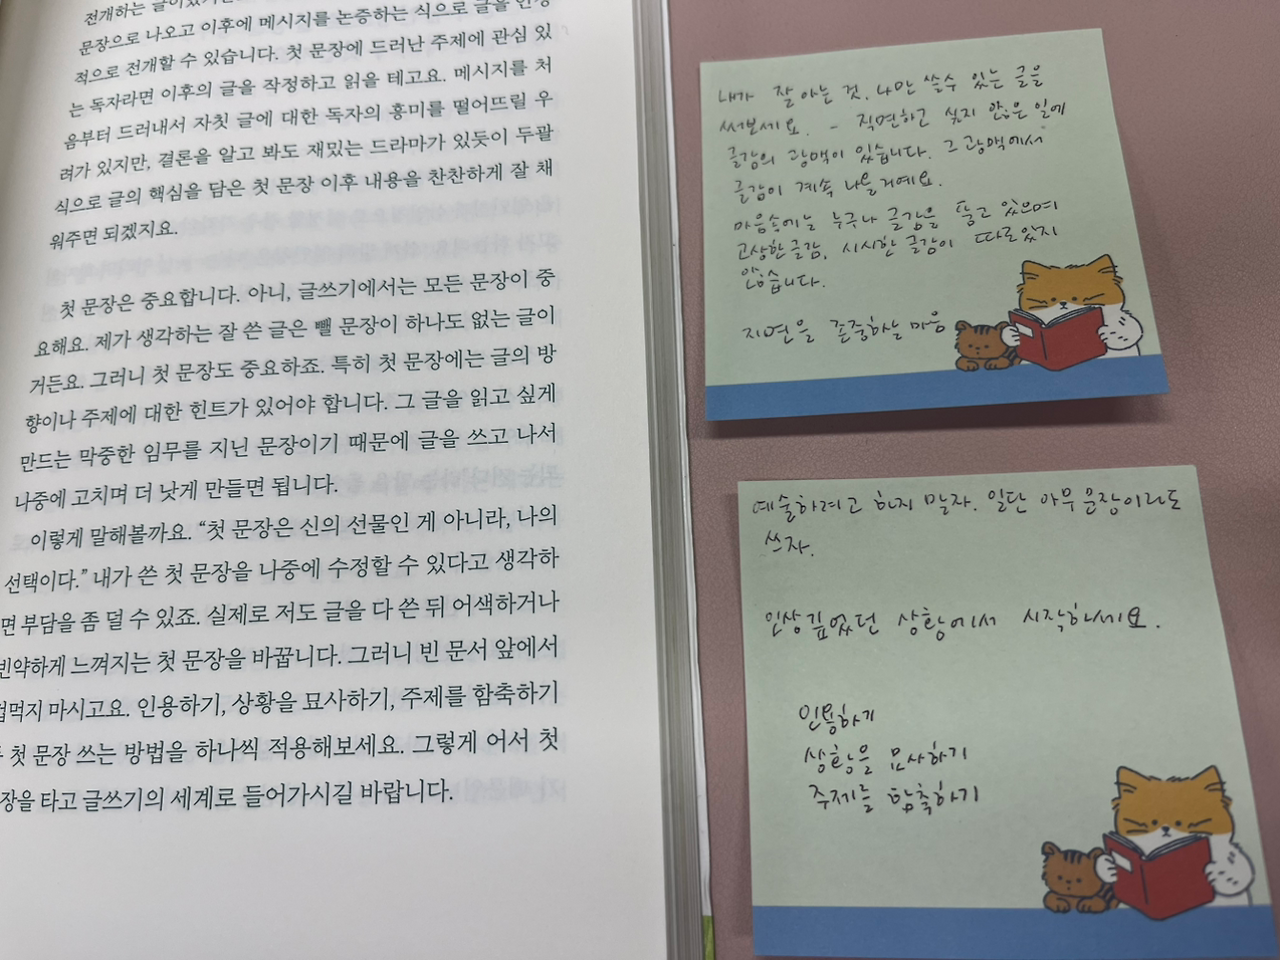 전개하는 글이
문장으로 나오고 이후에 메시지를 논증하는 식으로 글을 안정
적으로 전개할 수 있습니다. 첫 문장에 드러난 주제에 관심 있
는 독자라면 이후의 글을 작정하고 읽을 테고요. 메시지를 처
음부터 드러내서 자칫 글에 대한 독자의 흥미를 떨어뜨릴 우
려가 있지만, 결론을 알고 봐도 재밌는 드라마가 있듯이 두괄
식으로 글의 핵심을 담은 첫 문장 이후 내용을 찬찬하게 잘 채
워주면 되겠지요.
첫 문장은 중요합니다. 아니, 글쓰기에서는 모든 문장이 중
요해요. 제가 생각하는 잘 쓴 글은 뺄 문장이 하나도 없는 글이
거든요. 그러니 첫 문장도 중요하죠. 특히 첫 문장에는 글의 방
향이나 주제에 대한 힌트가 있어야 합니다. 그 글을 읽고 싶게
만드는 막중한 임무를 지닌 문장이기 때문에 글을 쓰고 나서
나중에 고치며 더 낫게 만들면 됩니다.
이렇게 말해볼까요. “첫 문장은 신의 선물인 게 아니라, 나의
선택이다.” 내가 쓴 첫 문장을 나중에 수정할 수 있다고 생각하
면 부담을 좀 덜 수 있죠. 실제로 저도 글을 다 쓴 뒤 어색하거나
빈약하게 느껴지는 첫 문장을 바꿉니다. 그러니 빈 문서 앞에서
겁먹지 마시고요. 인용하기, 상황을 묘사하기, 주제를 함축하기
첫 문장 쓰는 방법을 하나씩 적용해보세요. 그렇게 어서 첫
장을 타고 글쓰기의 세계로 들어가시길 바랍니다.
내가 잘 아는 것. 나만 쓸수 있는 글을
써보세요. - 직면하고 싶지 않은 일에
글감의 광맥이 있습니다. 그 광맥에서
글감이 계속 나올거예요.
마음속에는 누구나 글감을 품고 있으며
고상한 글감, 시시한 글감이 따로있지
않습니다.
지면을 존중하는 마음
예술하려고 하지 말자. 일단 아무 문장이라도
쓰자.
인상깊었던 상황에서 시작하세요.
인용하기
상황을 묘사하기
주제를 함축하기